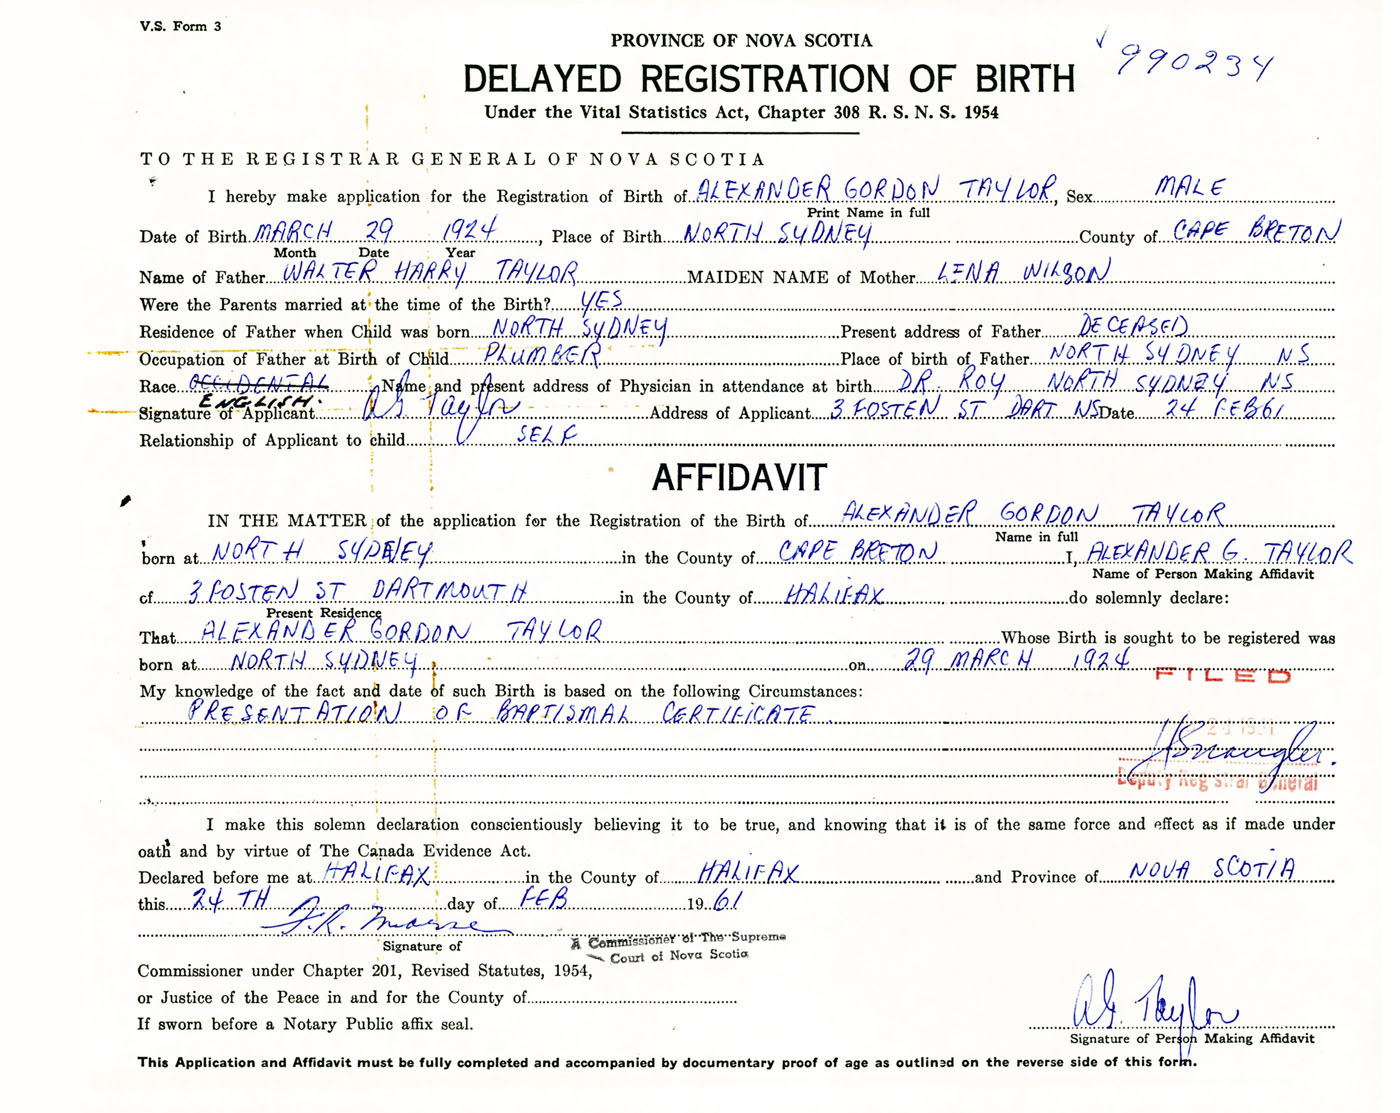 V.S. Form 3
PROVINCE OF NOVA SCOTIA
990234
DELAYED REGISTRATION OF BIRTH
Under the Vital Statistics Act, Chapter 308 R. S. N. S. 1954
TO THE REGISTRAR GENERAL OF NOVA SCOTIA
I hereby make application for the Registration of Birth of ALEXANDER GORDON TAYLOR, Sex MALE
Print Name in full
Date of Birth MARCH 29 1924, Place of Birth NORTH SYDNEY County of CAPE BRETON
Month Date Year
Name of Father WALTER HARRY TAYLOR MAIDEN NAME of Mother LENA WILSON
Were the Parents married at the time of the Birth? YES
Residence of Father when Child was born NORTH SYDNEY Present address of Father DECEASED
Occupation of Father at Birth of Child PLUMBER Place of birth of Father NORTH SYDNEY NS
Race OCCIDENTAL Name and present address of Physician in attendance at birth DR. ROY NORTH SYDNEY NS
ENGLISH.
Signature of Applicant AG Taylor Address of Applicant 3 FOSTEN ST DART NS Date 24 FEB 61
Relationship of Applicant to child SELF
AFFIDAVIT
IN THE MATTER of the application for the Registration of the Birth of ALEXANDER GORDON TAYLOR
Name in full
born at NORTH SYDNEY in the County of CAPE BRETON I, ALEXANDER G. TAYLOR
Name of Person Making Affidavit
of 3 FOSTEN ST DARTMOUTH in the County of HALIFAX do solemnly declare:
Present Residence
That ALEXANDER GORDON TAYLOR Whose Birth is sought to be registered was
born at NORTH SYDNEY on 29 MARCH 1924
FILED
My knowledge of the fact and date of such Birth is based on the following Circumstances:
PRESENTATION OF BAPTISMAL CERTIFICATE
24 1961
Deputy Registrar General
I make this solemn declaration conscientiously believing it to be true, and knowing that it is of the same force and effect as if made under
oath and by virtue of The Canada Evidence Act.
Declared before me at HALIFAX in the County of HALIFAX and Province of NOVA SCOTIA
this 24 TH day of FEB 19 61
F.R. Morse
Signature of
A Commissioner of The Supreme
Court of Nova Scotia
Commissioner under Chapter 201, Revised Statutes, 1954,
or Justice of the Peace in and for the County of
If sworn before a Notary Public affix seal.
AG. Taylor
Signature of Person Making Affidavit
This Application and Affidavit must be fully completed and accompanied by documentary proof of age as outlined on the reverse side of this form.